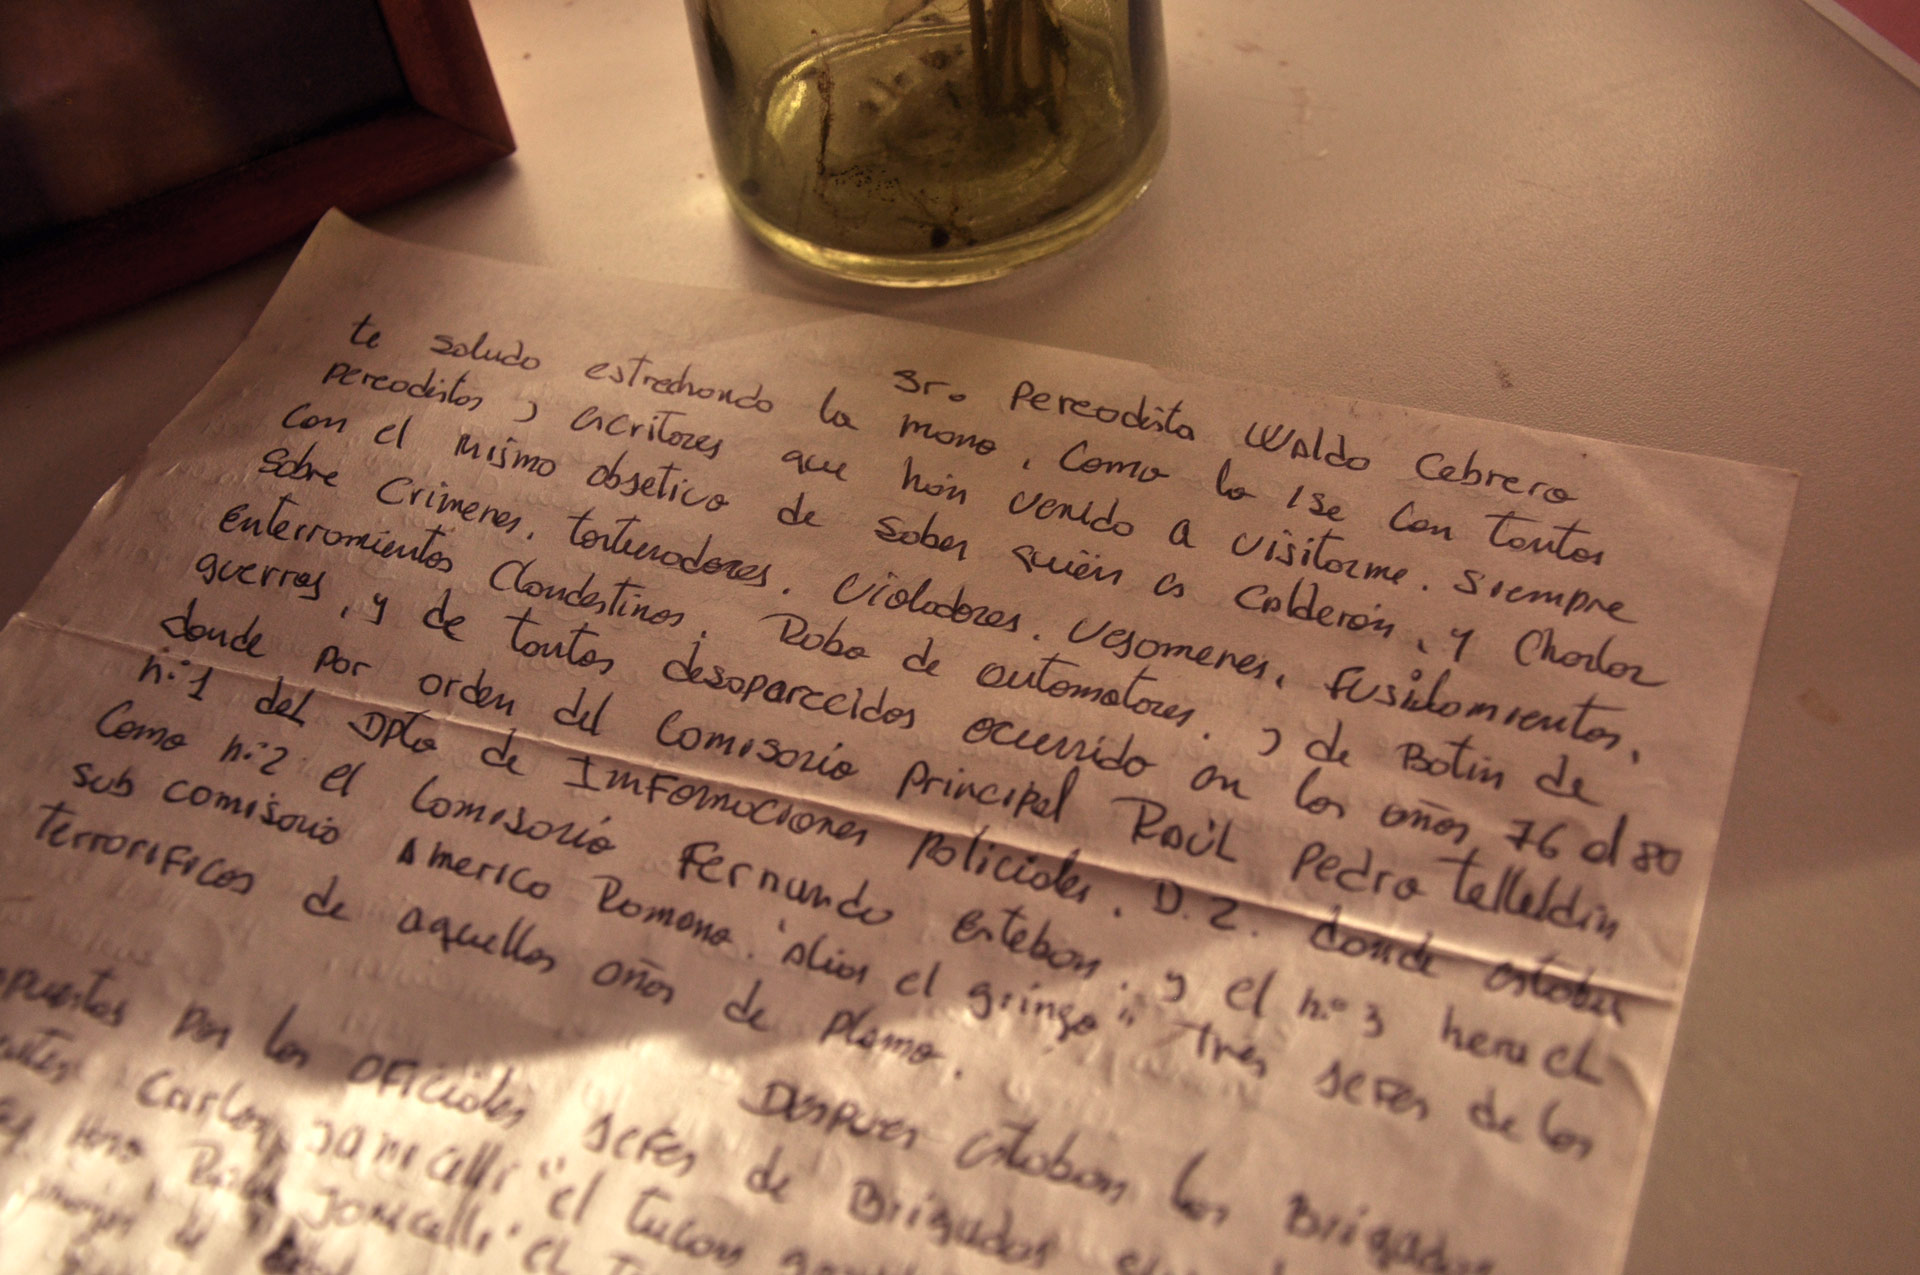 Sr. Pereodista Waldo Cebrero
te saludo estrechando la mano, Como lo ise Con tantos
pereodistas y escritores que hán venido a visitarme. Siempre
Con el mismo obsetico de saber quién es Calderón, y Charlar
Sobre Crímenes, torturadores, violadores. Vesamenes, Fusilamientos,
enterramientos Clandestinos. Robo de automotores. y de Botin de
guerras, y de tantos desaparecidos ocurrido en los años 76 al 80
donde por orden del Comisario principal Raúl Pedro Telleldin
n:1 del Dpto de Imformaciones policiales. D.2. donde estaba
Como n:2 el Comisario Fernando Esteban. y el n:3 hera el
sub comisario Americo Romano. "alias el gringo" tres seres de los
terrorificos de aquellos años de plomo.
Despues estaban las Brigadas
por los oficiales seres de Brigadas
Carlos Janicelli "el tucan
Janicelli "el